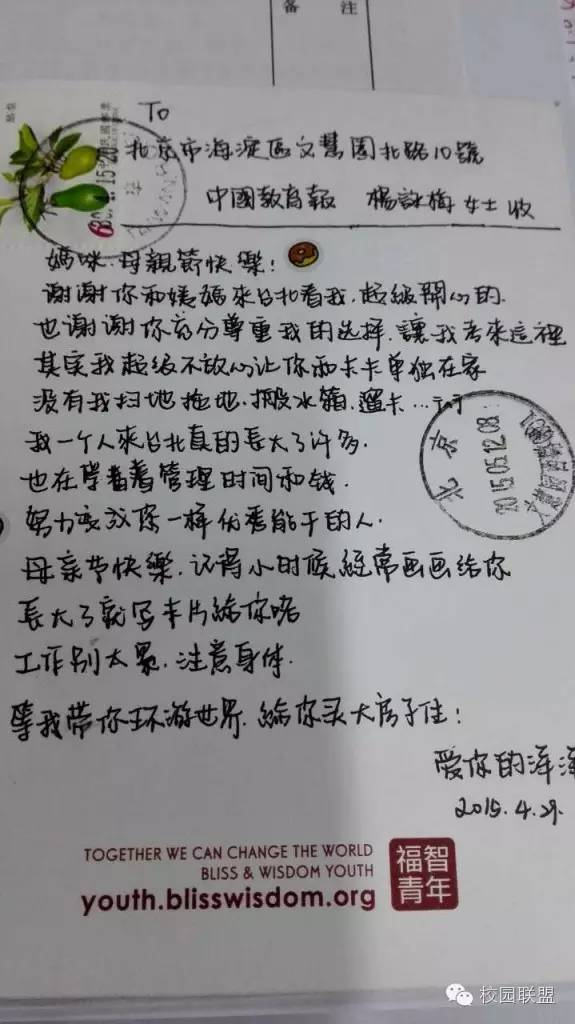 备 注
To
北京市海淀区文慧園北路10號
中國教育報 楊詠梅 女士 收
媽咪.母親節快樂!
谢谢你和姨媽來台北看我.超級開心的.
也谢谢你充分尊重我的选择.讓我考來這裡
其实我超级不放心让你和卡卡单独在家
没有我扫地拖地.搬水箱.遛卡...
我一个人來台北真的長大了许多.
也在學着管理时间和钱.
努力变成你一样优秀能干的人.
母亲节快樂.记得小时候經常画画给你
長大了就写卡片給你啦
工作别太累.注意身体.
等我带你环游世界.給你买大房子住!
爱你的洋洋
2015.4.29.
北京
2015.05.12.08
TOGETHER WE CAN CHANGE THE WORLD
BLISS & WISDOM YOUTH
youth.blisswisdom.org
福智
青年
校园联盟